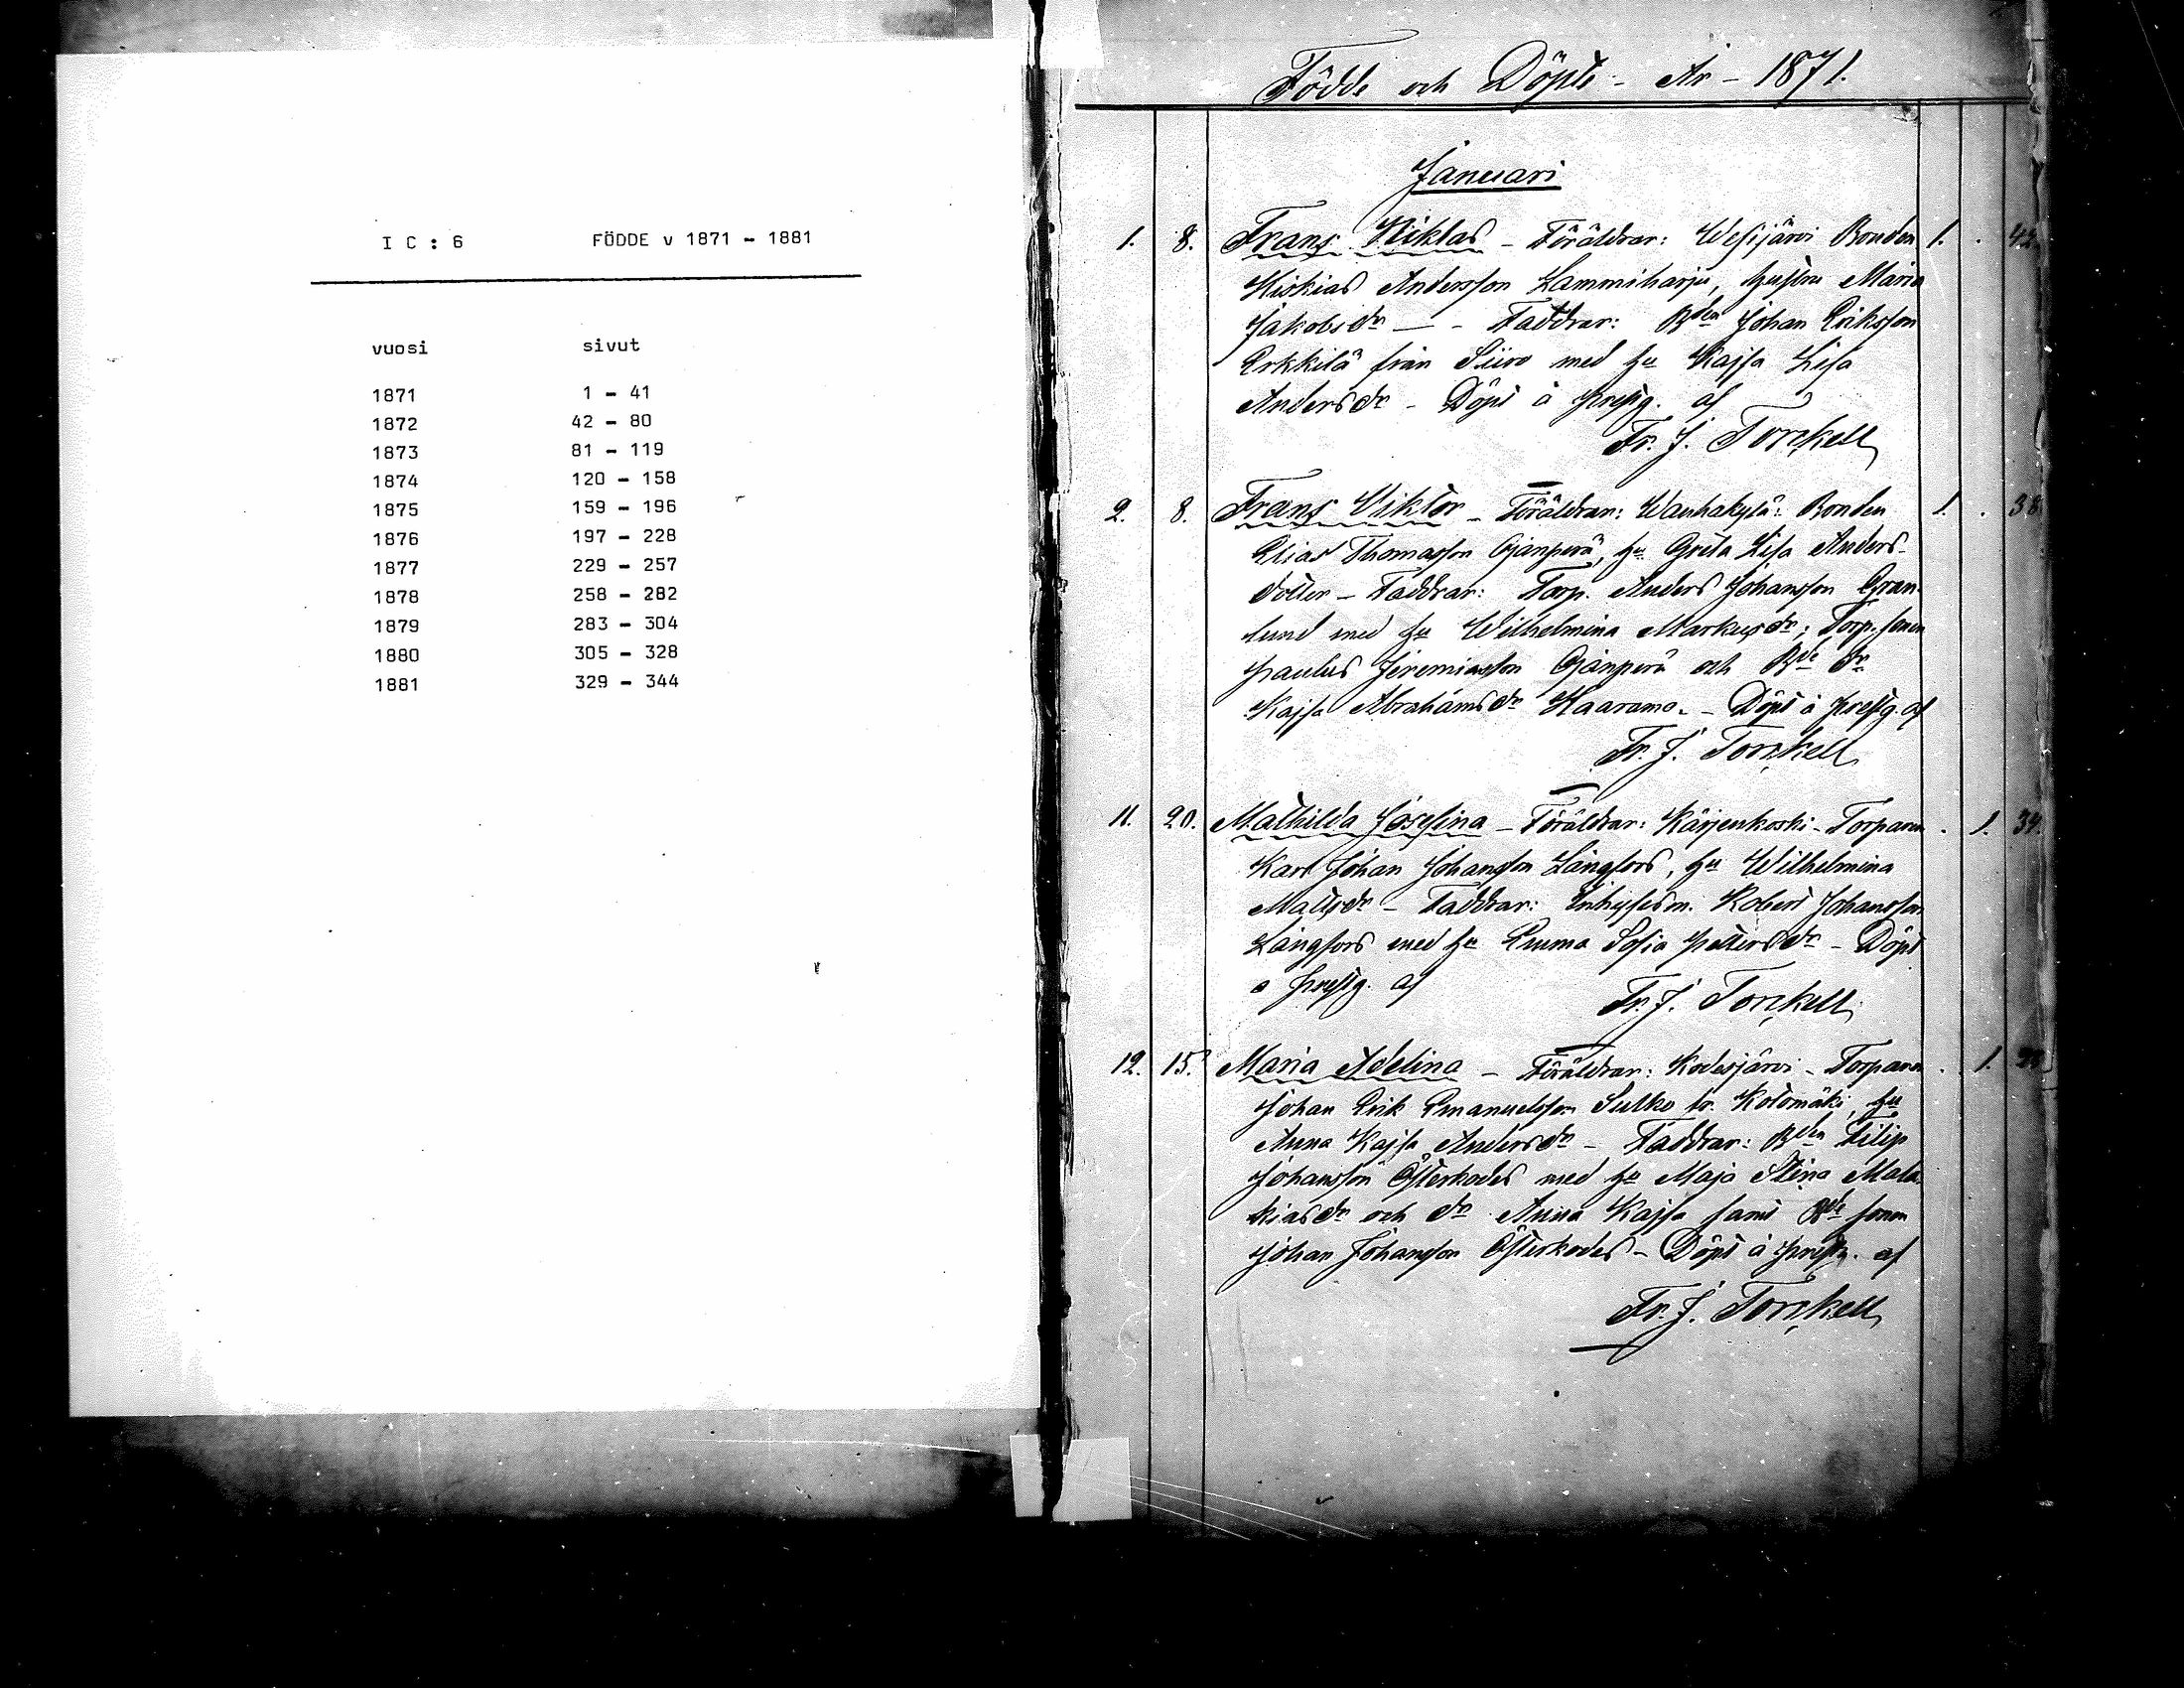 I C : 6 FÖDDE v 1871 - 1881
vuosi sivut
1871 1 - 41
1872 42 - 80
1873 81 - 119
1874 120 - 158
1875 159 - 196
1876 197 - 228
1877 229 - 257
1878 258 - 282
1879 283 - 304
1880 305 - 328
1881 329 - 344
Födde och Döpte - År - 1871.
Januari
1. 8. Frans Niklas - Föräldrar: Wesijärvi Bonden 1. . 42.
Hiskias Andersson Lammiharju, hustru Maria
Jakobsdr - Faddrar: Bden Johan Eriksson
Erkkilä från Siiro med hu Kajsa Lisa
Andersdr - Döpt å prestg. af
Fr. J. Torckell
2. 8. Frans Viktor - Föräldrar: Wanhakylä: Bonden 1. . 38.
Elias Thomasson Ojanperä, hu Greta Lisa Anders-
dotter - Faddrar: Torp. Anders Johansson Gran-
lund med hu Wilhelmina Markusdr; Torp. sonen
Paulus Jeremiasson Ojanperä och Bde dr
Kajsa Abrahamsdr Haaramo. - Döpt å prestg. af
Fr. J. Torckell
11. 20. Mathilda Josefina - Föräldrar: Kärjenkoski - Torparen . 1. 34.
Karl Johan Johansson Långfors, hu Wilhelmina
Mattsdr - Faddrar: Inhysesm. Robert Johansson
Långfors med hu Emma Sofia Pettersdr - Döpt
å prestg. af
Fr. J. Torckell
12. 15. Maria Adelina - Föräldrar: Kodesjärvi - Torparen . 1.
Johan Erik Emanuelsson Sulko Kotomäki, hu
Anna Kajsa Andersdr - Faddrar: Bden Filip
Johansson Österkodes med hu Maja Stina Mala-
kiasdr och dr Anna Kajsa samt Bde sonen
Johan Johansson Österkodes - Döpt å prestg. af
Fr. J. Torckell